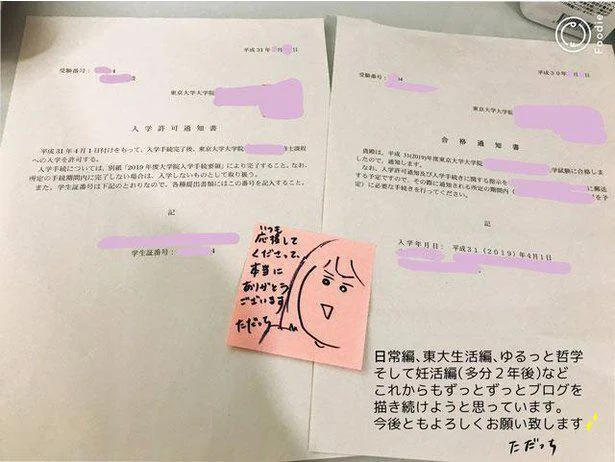 平成31年 月 日
受験番号: 4
東京大学大学院
入学許可通知書
平成31年4月1日付けをもって、入学手続完了後、東京大学大学院 士課程
への入学を許可する。
入学手続については、別紙「2019年度大学院入学手続要領」により完了すること。なお、
所定の手続期間内に完了しない場合は、入学しないものとして取り扱う。
また、学生証番号は下記のとおりなので、各種提出書類にはこの番号を記入すること。
記
学生証番号: 4
平成30年 月 日
受験番号:
東京大学大学院
合格通知書
貴殿は、平成31(2019)年度東京大学大学院 学試験に合格しま
したので、通知します。
なお、入学許可通知及び入学手続きに関する指示を に郵送
する予定ですので、その際に通知される所定の期間内( を予
定)に必要な手続きを行ってください。
記
入学年月日:平成31(2019)年4月1日
いつも
応援して
くださって、
本当に
ありがとう
ございます
ただっち
日常編、東大生活編、ゆるっと哲学
そして妊活編(多分2年後)など
これからもずっとずっとブログを
描き続けようと思っています。
今後ともよろしくお願い致します
ただっち
Foodie